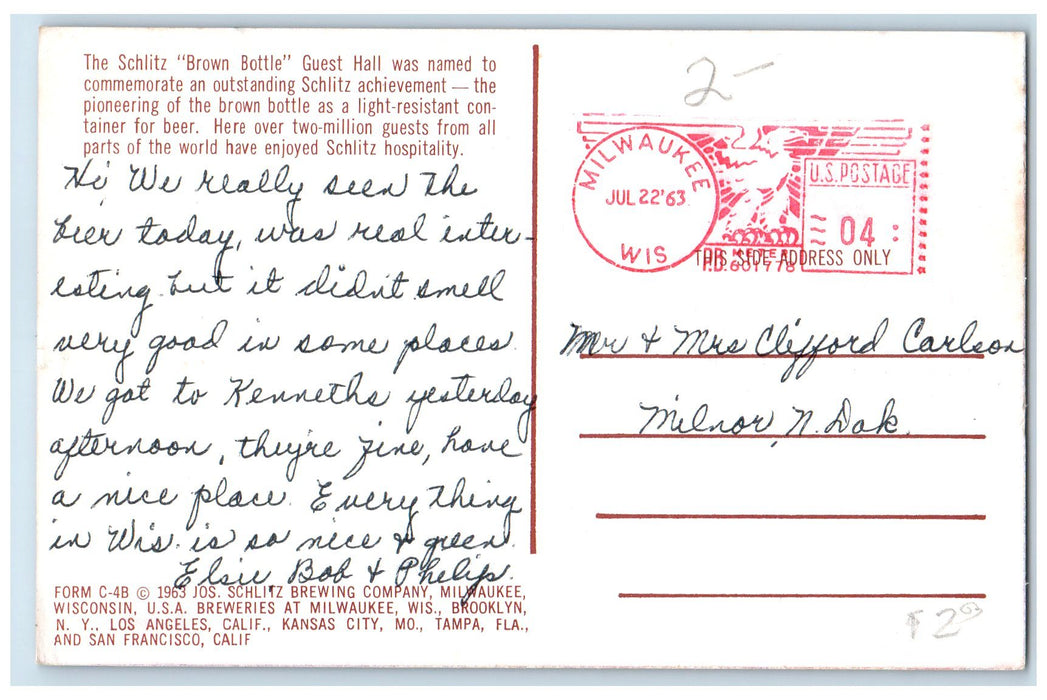 The Schlitz "Brown Bottle" Guest Hall was named to
commemorate an outstanding Schlitz achievement — the
pioneering of the brown bottle as a light-resistant con-
tainer for beer. Here over two-million guests from all
parts of the world have enjoyed Schlitz hospitality.
Hi We really seen the
beer today, was real inter-
esting but it didn't smell
very good in some places.
We got to Kenneths yesterday
afternoon, they're fine, have
a nice place. Every thing
in Wis. is so nice & green.
Elsie, Bob & Philip.
FORM C-4B © 1963 JOS. SCHLITZ BREWING COMPANY, MILWAUKEE,
WISCONSIN, U.S.A. BREWERIES AT MILWAUKEE, WIS., BROOKLYN,
N. Y., LOS ANGELES, CALIF., KANSAS CITY, MO., TAMPA, FLA.,
AND SAN FRANCISCO, CALIF
2—
MILWAUKEE
JUL 22 '63
WIS
U.S. POSTAGE
04
METER
P.B. 601778
THIS SIDE ADDRESS ONLY
Mr & Mrs Clifford Carlson
Milnor, N. Dak.